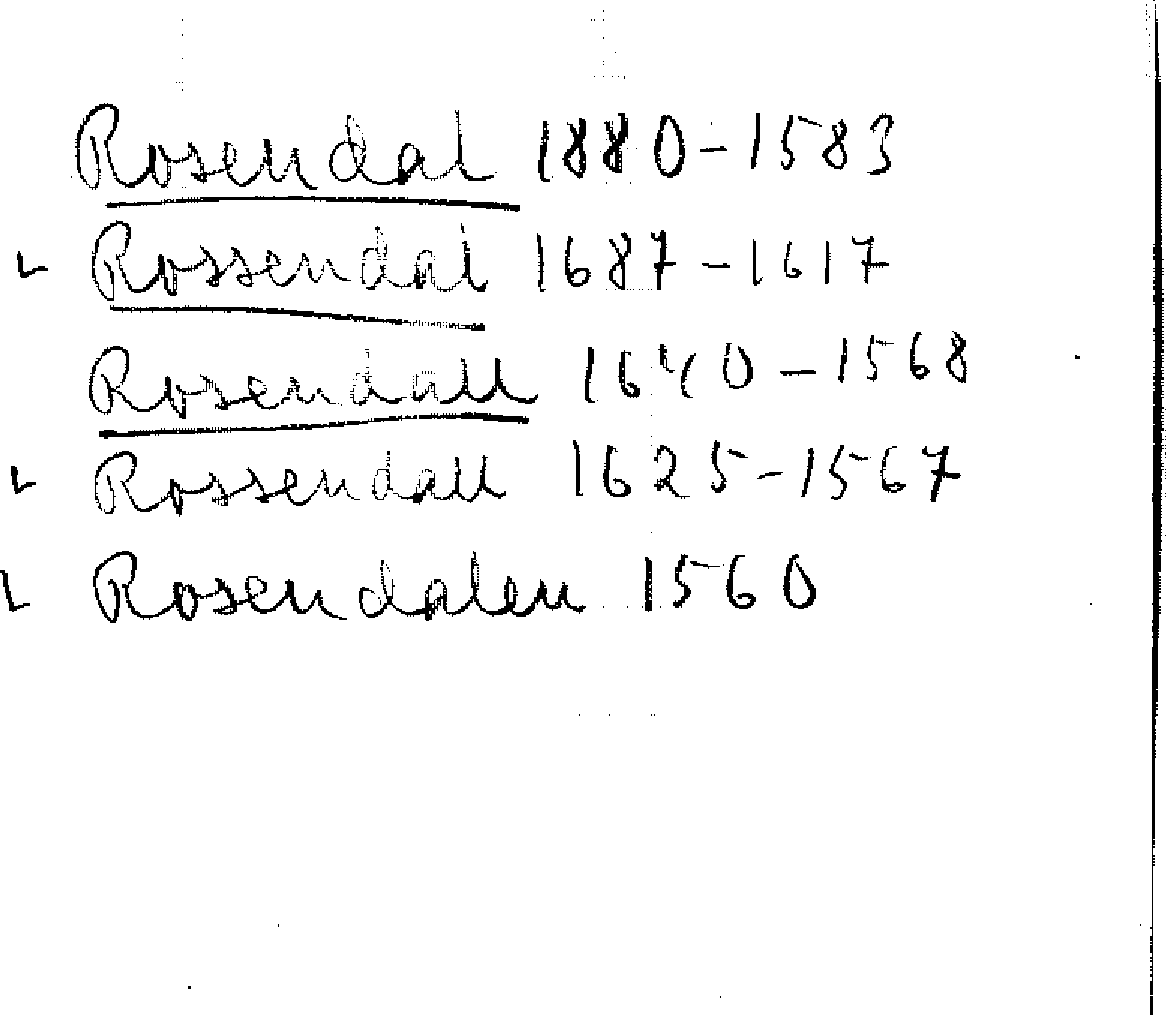 Rosendal 1880-1583
Rossendal 1687-1617
Rosendall 1640-1568
Rossendall 1625-1567
Rosendalen 1560